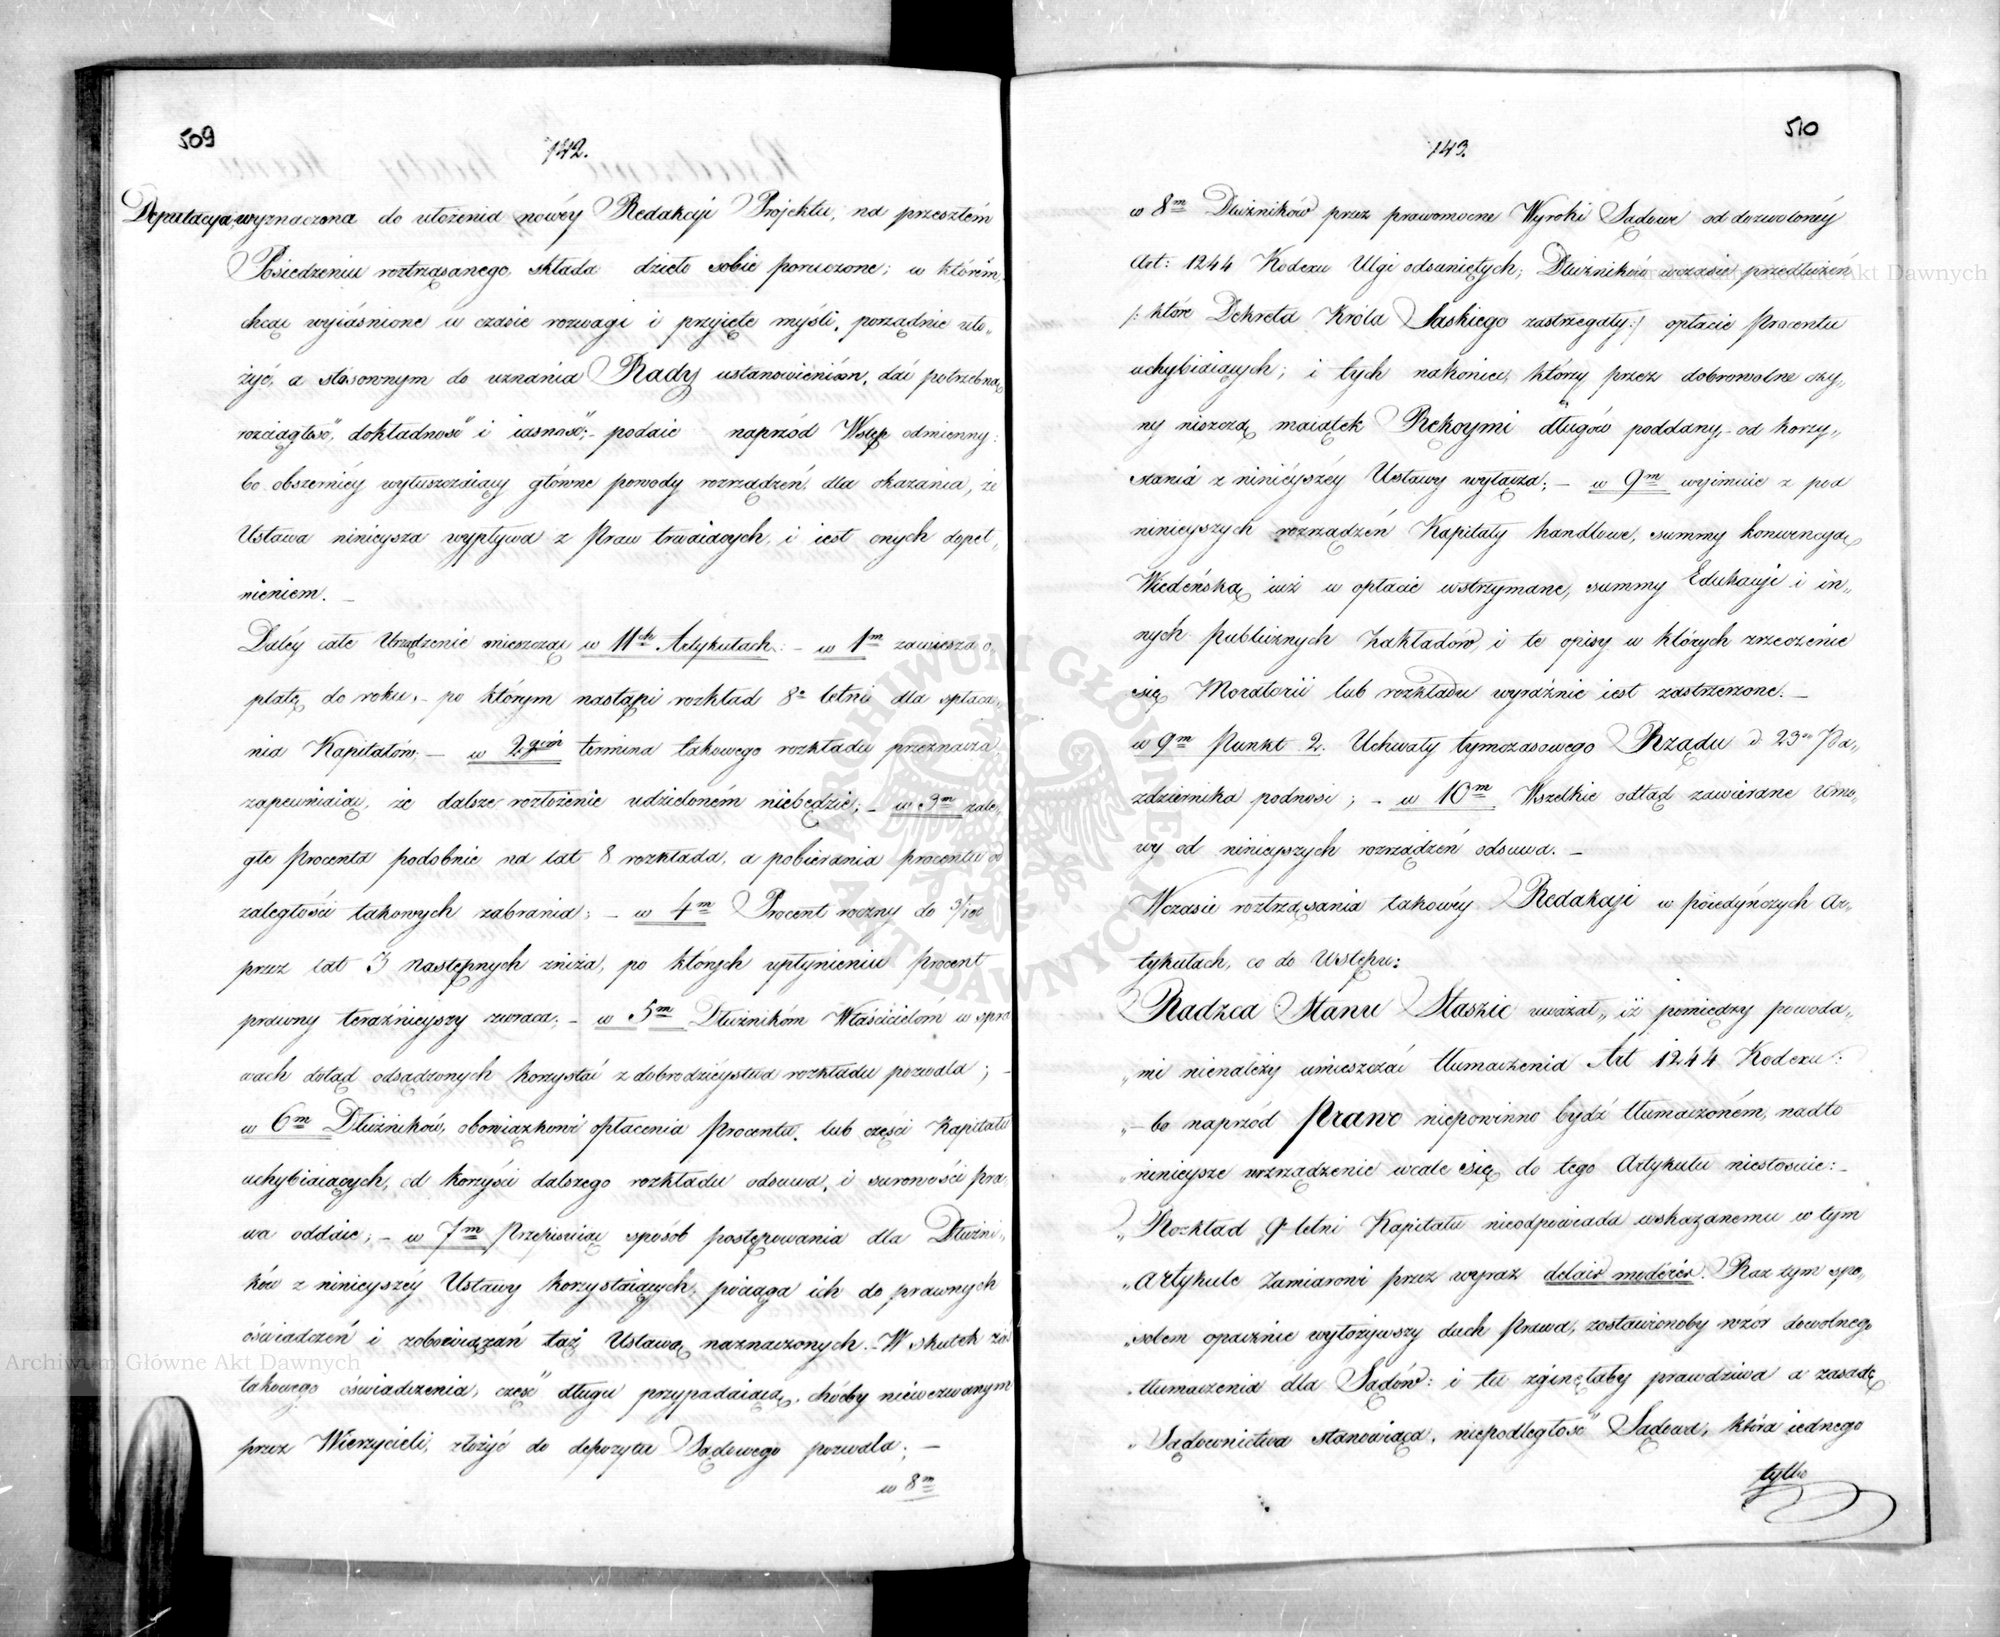 509
142.
Deputacya wyznaczona do ułożenia nowéy Redakcyi Projektu, na przeszłém
Posiedzeniu roztrząsanego, składa dzieło sobie poruczone; w którém,
chcąc wyiaśnione w czasie rozwagi i przyięte myśli, porządnie uło„
żyć, a stosownym do uznania Rady ustanowieniom, dać potrzebną
rozciągłość, dokładność i iasność; – podaie naprzód Wstęp odmienny:
bo obszerniéy wyłuszczaiący główne powody rozrządzeń, dla okazania, że
Ustawa ninieysza wypływa z Praw trwaiących, i iest onych dopeł„
nieniem. –
Daléy całe Urządzenie mieszcząc w 11ch Artykułach: – w 1m zawiesza o„
płatę do roku, – po którym nastąpi rozkład 8o letni dla spłaca„
nia Kapitałów; – w 2gim termina takowego rozkładu przeznacza
zapewniaiąc, że dalsze rozłożenie udzieloném niebędzie; – w 3m zale„
głe Procenta podobnie na lat 8 rozkłada, a pobierania procentu od
zaległości takowych zabrania; – w 4m Procent roczny do 3/100
przez lat 3 następnych zniża, po których upłynieniu Procent
prawny teraźnieyszy zwraca; – w 5m Dłużnikóm Właścicielóm w spra
wach dotąd odsądzonych korzystać z dobrodzieystwa rozkładu pozwala; –
w 6m Dłużników, obowiązkowi opłacenia Procentu, lub części Kapitału
uchybiaiących, od korzyści dalszego rozkładu odsuwa, i surowości Pra
wa oddaie; – w 7m Przepisuiąc sposób postępowania dla Dłużni„
ków z ninieyszéy Ustawy korzystaiących, pociąga ich do prawnych
oświadczeń i zobowiązań tąż Ustawą naznaczonych. W skutek zaś
takowego oświadczenia, część długu przypadaiącą, choćby niewezwanym
przez Wierzycieli, złożyć do depozytu Sądowego pozwala; –
w 8m
510
143.
w 8m Dłużników przez prawomocne Wyroki Sądowe od dozwolonéy
Art: 1244 Kodexu Ulgi odsuniętych; Dłużników wczasie przedłużeń
/: które Dekreta Króla Saskiego zastrzegały:/ opłacie Procentu
uchybiaiących; i tych nakoniec, którzy przez dobrowolne czy„
ny niszczą maiątek Rękoymi długów poddany, – od korzy„
stania z ninieyszéy Ustawy wyłącza; – w 9m wyimuie z pod
ninieyszych rozrządzeń Kapitały handlowe, summy konwencyą
Wiedeńską iuż w opłacie wstrzymane, summy Edukacyi i in„
nych Publicznych Zakładów, i te opisy w których zrzeczenie
się Moratorii lub rozkładu wyraźnie iest zastrzeżone. –
w 9m Punkt 2. Uchwały tymczasowego Rządu d 23o Pa„
zdziernika podnosi; – w 10m Wszelkie odtąd zawierane Umo„
wy od ninieyszych rozrządzeń odsuwa. –
Wczasie roztrząsania takowéy Redakcyi w poiedyńczych Ar„
tykułach, co do Wstępu:
Radzca Stanu Staszic uważał „ iż pomiędzy powoda„
„mi nienależy umieszczać tłumaczenia Art 1244 Kodexu:
„– bo naprzód Prawo niepowinno bydź tłumaczoném, nadto
„ninieysze urządzenie wcale się do tego Artykułu niestosuie: –
„Rozkład 9 letni Kapitału nieodpowiada wskazanemu w tym
„Artykule Zamiarowi przez wyraz delais modérés. Raz tym spo„
„sobem opacznie wyłożywszy duch Prawa, zostawionoby wzór dowolnego
„tłumaczenia dla Sądów: i tu zginęłaby prawdziwa a zasadę
„Sądownictwa stanowiąca, niepodległość Sądowa, która iednego
tylko
Archiwum Główne Akt Dawnych
Archiwum Główne Akt Dawnych
ARCHIWUM GŁÓWNE AKT DAWNYCH